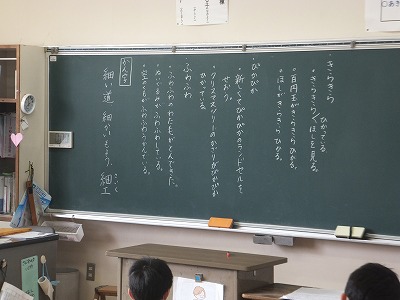 ・きらきら ひかってる
・きらきらしたほしを見る。
・百円玉がきらきらひかる。
・ほしがきらきらひかる。
・ぴかぴか
・新しくてぴかぴかのランドセルをせおう。
・クリスマスツリーのかざりがぴかぴかひかっている
・ふわふわ
・ふわふわのわたあめがとんできた。
・ぬいぐるみがふわふわしている。
・空のくもがふわふわうかんでいる。
かん字
細い道 細かいもよう 細工
さいく